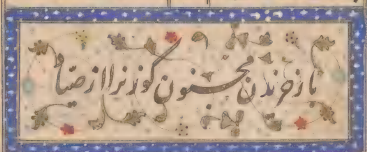 باز خریدن مجنون گوزنرا از صیاد